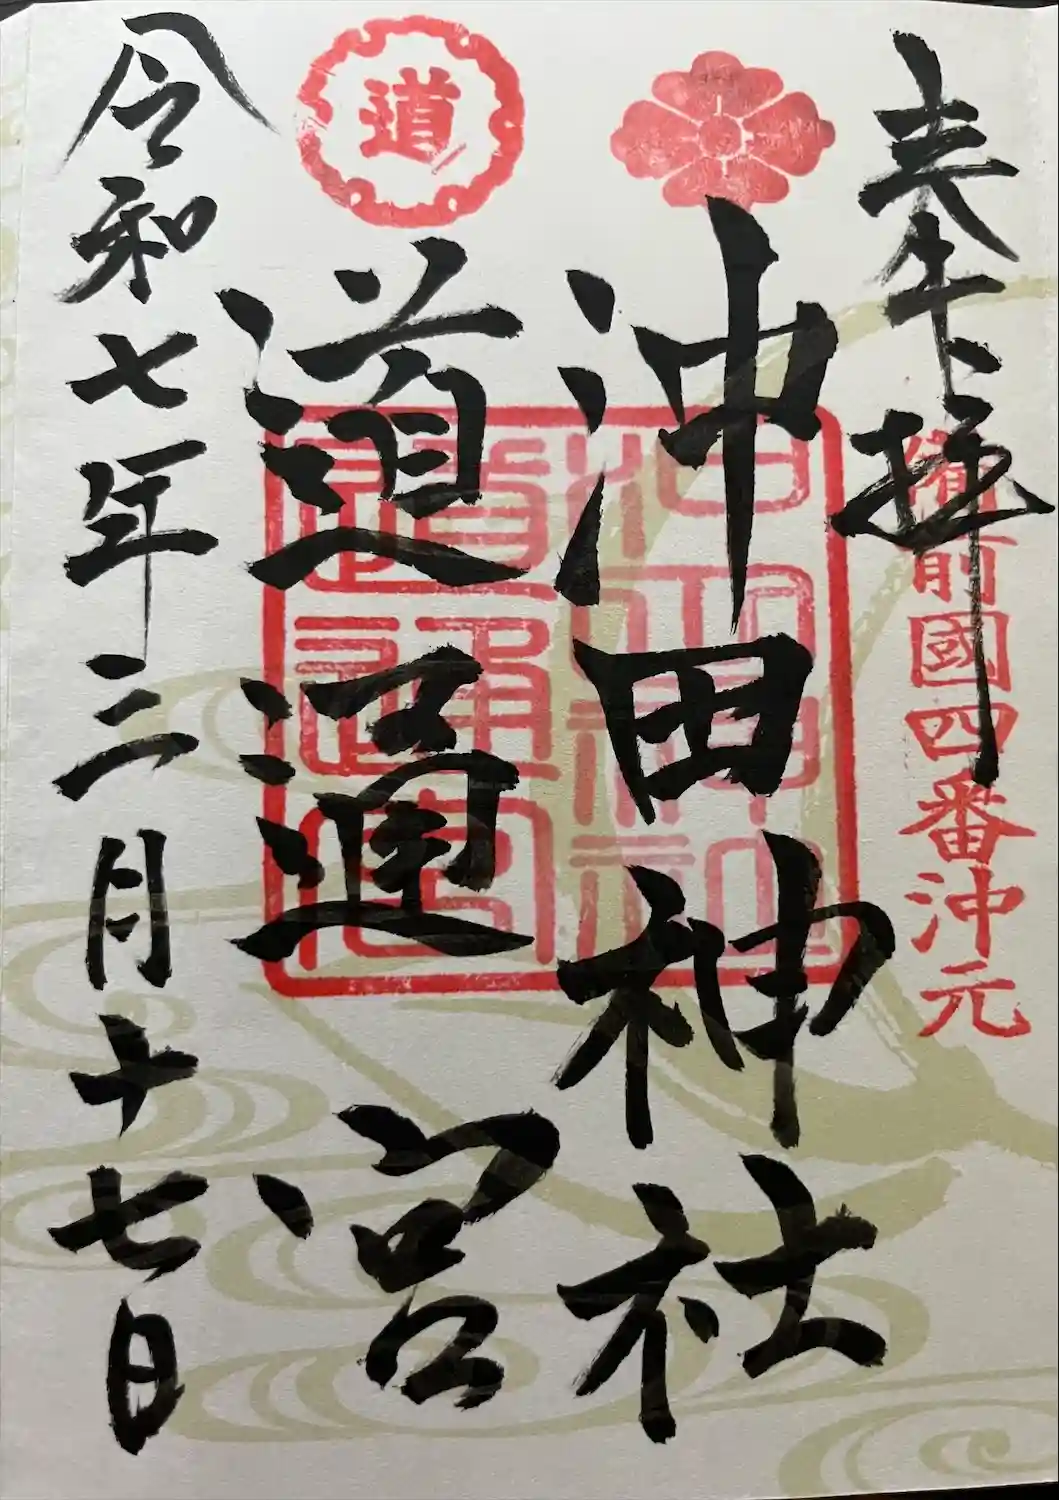 奉拝
備前國四番沖元
沖田神社
道
道通宮
沖田神社
道通宮
令和七年三月十七日